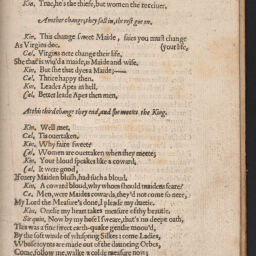 Kin, True, he's the thiefe, but women the receiuer,
Another change, they fall in, the rest goe on.
Kin, This change sweet Maide, saies you must change
As Virgins doe. (your life,
Cal, Virgins nere change their life,
She that is wiu'd a maide, is Maide and wife.
Kin, But she that dyes a Maide;
Cal, Thrice happy then.
Kin, Leades Apes in hell,
Cal, Better leade Apes then men,
At this third change they end, and she meetes the King.
Kin, Well met,
Cal, Tis ouertaken,
Kin, Why faire sweete?
Cal, Women are ouertaken when they meete;
Kin, Your blood speakes like a coward,
Cal, It were good,
If euery Maiden blush, had such a bloud,
Kin, A coward bloud, why whom should maidens feare?
Ca, Men, were Maides cowards, they'd not come so neer,
My Lord the Measure's done, I pleade my duetie,
Kin, Onelie my heart takes measure of thy beautie,
Sir quin, Now by my hose I sweare, that's no deepe oath,
This was a fine sweet earth-quake gentlie moou'd,
By the soft winde of whispring Silkes: come Ladies,
Whose ioynts are made out of the dauncing Orbes,
Come, follow me, walke a colde measure now;